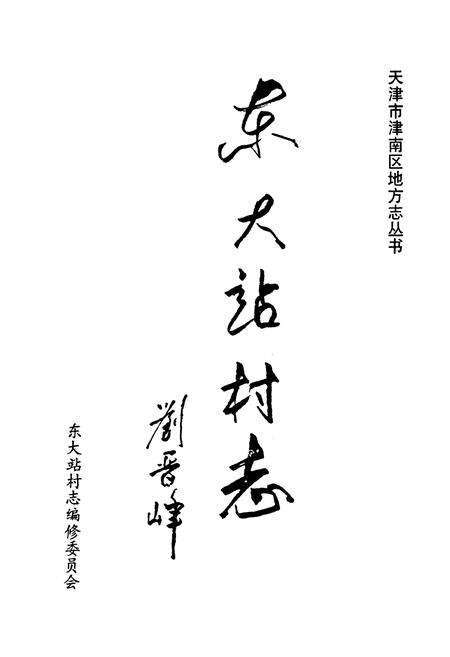 天津市津南区地方志丛书
东大站村志
劉晋峰
东大站村志编修委员会